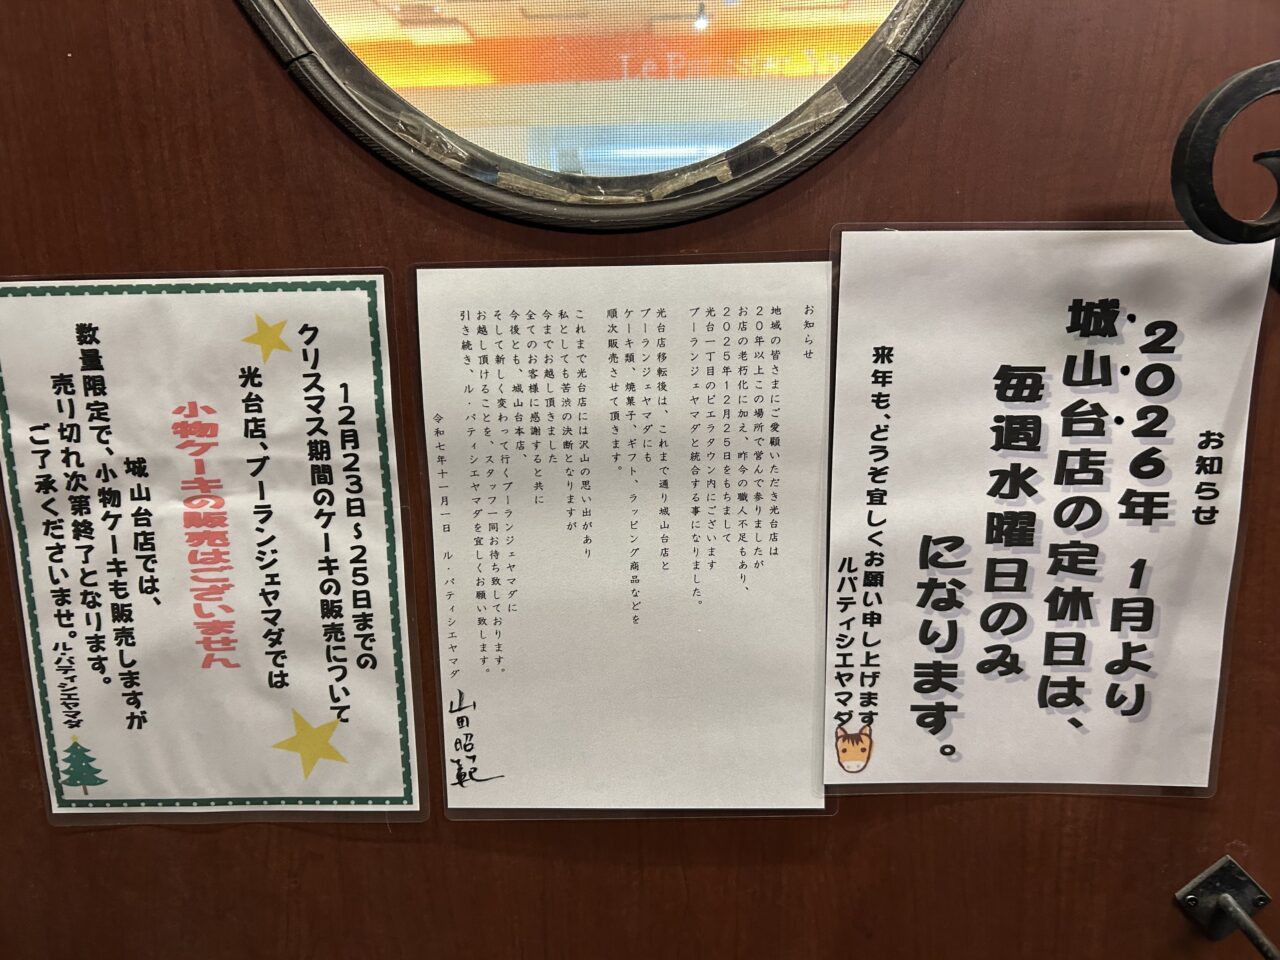 Le Patissier Ya
お知らせ
2026年 1月より
城山台店の定休日は、
毎週水曜日のみ
になります。
来年も、どうぞ宜しくお願い申し上げます
ルパティシエヤマダ
お知らせ
地域の皆さまにご愛顧いただき光台店は
20年以上この場所で営んで参りましたが
お店の老朽化に加え、昨今の職人不足もあり、
2025年12月25日をもちまして
光台一丁目のピエラタウン内にございます
ブーランジェヤマダと統合する事になりました。
光台店移転後は、これまで通り城山台店と
ブーランジェヤマダにも
ケーキ類、焼菓子、ギフト、ラッピング商品などを
順次販売させて頂きます。
これまで光台店には沢山の思い出があり
私としても苦渋の決断となりますが
今までお越し頂きました
全てのお客様に感謝すると共に
今後とも、城山台本店、
そして新しく変わって行くブーランジェヤマダに
お越し頂けることを、スタッフ一同お待ち致しております。
引き続き、ル・パティシエヤマダを宜しくお願い致します。
令和七年十一月一日 ル・パティシエヤマダ
山田昭範
12月23日~25日までの
クリスマス期間のケーキの販売について
光台店、ブーランジェヤマダでは
小物ケーキの販売はございません
城山台店では、
数量限定で、小物ケーキも販売しますが
売り切れ次第終了となります。
ご了承くださいませ。
ル・パティシエヤマダ